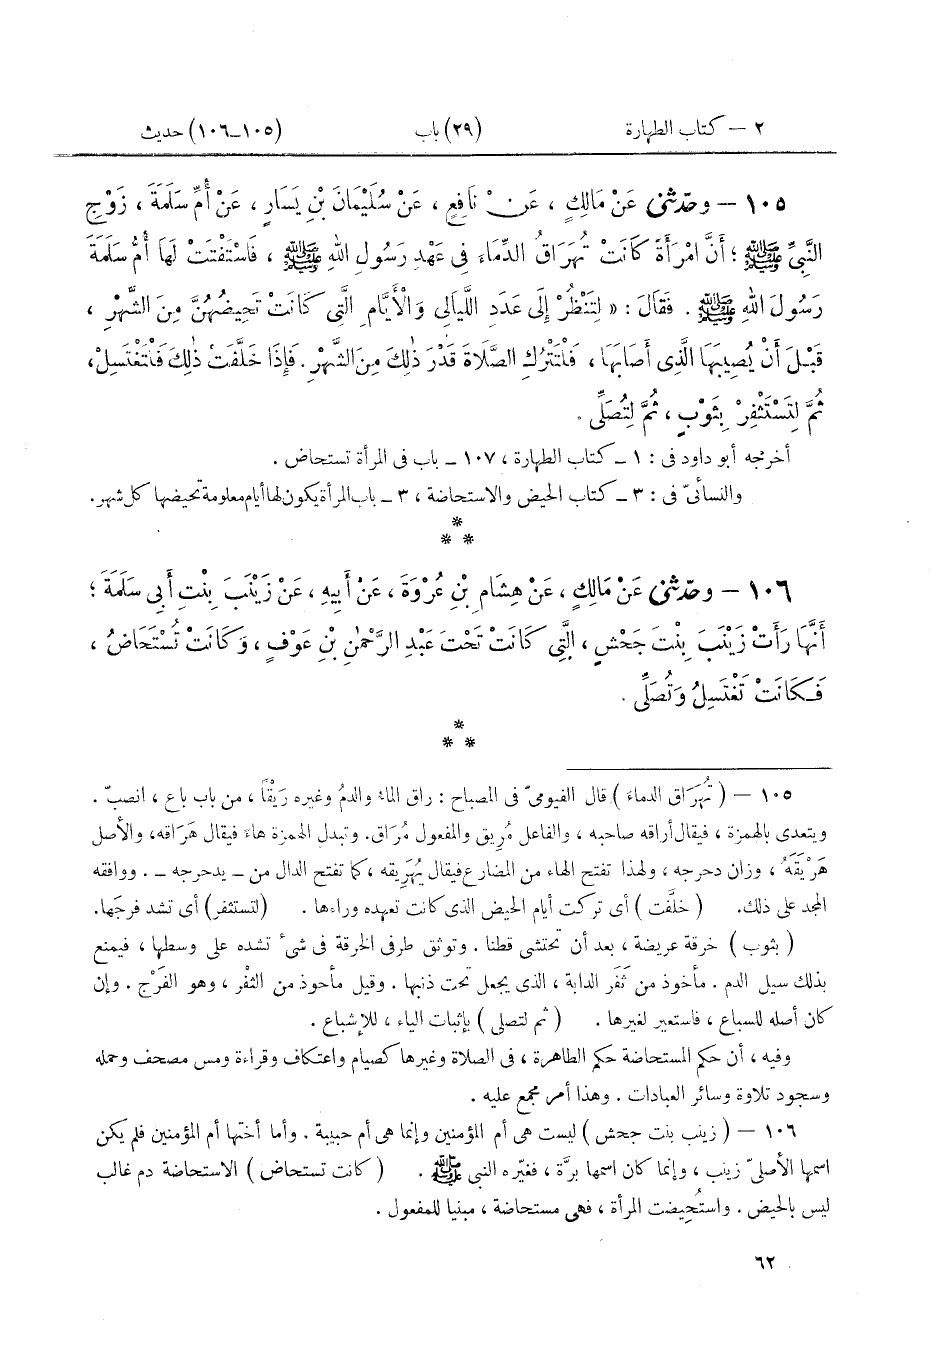 ٢ – كتاب الطهارة (٢٩) باب (١٠٥–١٠٦) حديث
١٠٥ – وحَدّثنى عَنْ مَالِكٍ ، عَنْ نَافِعٍ ، عَنْ سُلَيْمَانَ بْنِ يَسَارٍ ، عَنْ أُمِّ سَلَمَةَ ، زَوْجِ
النَّبِيِّ ﷺ ؛ أَنَّ امْرَأَةً كَانَتْ تُهَرَاقُ الدِّمَاءَ فِى عَهْدِ رَسُولِ اللهِ ﷺ ، فَاسْتَفْتَتْ لَهَا أُمُّ سَلَمَةَ
رَسُولَ اللهِ ﷺ . فَقَالَ : « لِتَنْظُرْ إِلَى عَدَدِ اللَّيَالِى وَالْأَيَّامِ الَّتِى كَانَتْ تَحِيضُهُنَّ مِنَ الشَّهْرِ ،
قَبْلَ أَنْ يُصِيبَهَا الَّذِى أَصَابَهَا ، فَلْتَتْرُكِ الصَّلَاةَ قَدْرَ ذٰلِكَ مِنَ الشَّهْرِ . فَإِذَا خَلَّفَتْ ذٰلِكَ فَلْتَغْتَسِلْ ،
ثُمَّ لِتَسْتَثْفِرْ بِثَوْبٍ ، ثُمَّ لِتُصَلِّى .
أخرجه أبو داود فى : ١ ـ كتاب الطهارة ، ١٠٧ ـ باب فى المرأة تستحاض .
والنسائىّ فى : ٣ ـ كتاب الحيض والاستحاضة ، ٣ ـ باب المرأة يكون لها أيام معلومة تحيضها كل شهر.
*
* *
١٠٦ – وحَدّثنى عَنْ مَالِكٍ ، عَنْ هِشَامِ بْنِ عُرْوَةَ ، عَنْ أَبِيهِ ، عَنْ زَيْنَبَ بِنْتِ أَبِى سَلَمَةَ ؛
أَنَّهَا رَأَتْ زَيْنَبَ بِنْتَ جَحْشٍ ، الَّتِى كَانَتْ تَحْتَ عَبْدِ الرَّحْمٰنِ بْنِ عَوْفٍ ، وَكَانَتْ تُسْتَحَاضُ ،
فَكَانَتْ تَغْتَسِلُ وَتُصَلِّى .
*
* *
١٠٥ – ( تُهَرَاق الدماء ) قال الفيومىّ فى المصباح : راق الماء والدمُ وغيره رَيْقًا ، من باب باع ، انصبّ .
ويتعدى بالهمزة ، فيقال أراقه صاحبه ، والفاعل مُريق والمفعول مُراق. وتبدل الهمزة هاء فيقال هَرَاقه، والأصل
هَرْيَقَهُ ، وزان دحرجه ، ولهذا تفتح الهاء من المضارع فيقال يُهَرِيقه ، كما تفتح الدال من ـ يدحرجه ـ . ووافقه
المجد على ذلك. ( خلَّفت ) أى تركت أيام الحيض الذى كانت تعهده وراءها . (لتستثفر) أى تشد فرجَها.
( بثوب ) خرقة عريضة ، بعد أن تحتشى قطنا . وتوثق طرفى الخرقة فى شىء تشده على وسطها ، فيمنع
بذلك سيل الدم . مأخوذ من ثَفَر الدابة ، الذى يجعل تحت ذنبها . وقيل مأخوذ من الثفْر ، وهو الفَرْج . وإن
كان أصله للسباع ، فاستعير لغيرها . ( ثم لتصلى ) بإثبات الياء ، للإشباع .
وفيه ، أن حكم المستحاضة حكم الطاهرة ، فى الصلاة وغيرها كصيام واعتكاف وقراءة ومس مصحف وحمله
وسجود تلاوة وسائر العبادات . وهذا أمر مجمع عليه .
١٠٦ – ( زينب بنت جحش ) ليست هى أم المؤمنين وإنما هى أم حبيبة . وأما أختها أم المؤمنين فلم يكن
اسمها الأصلىّ زينب ، وإنما كان اسمها برَّة ، فغيّره النبى ﷺ . ( كانت تستحاض ) الاستحاضة دم غالب
ليس بالحيض . واستُحِيضت المرأة ، فهى مستحاضة ، مبنيا للمفعول .
٦٢